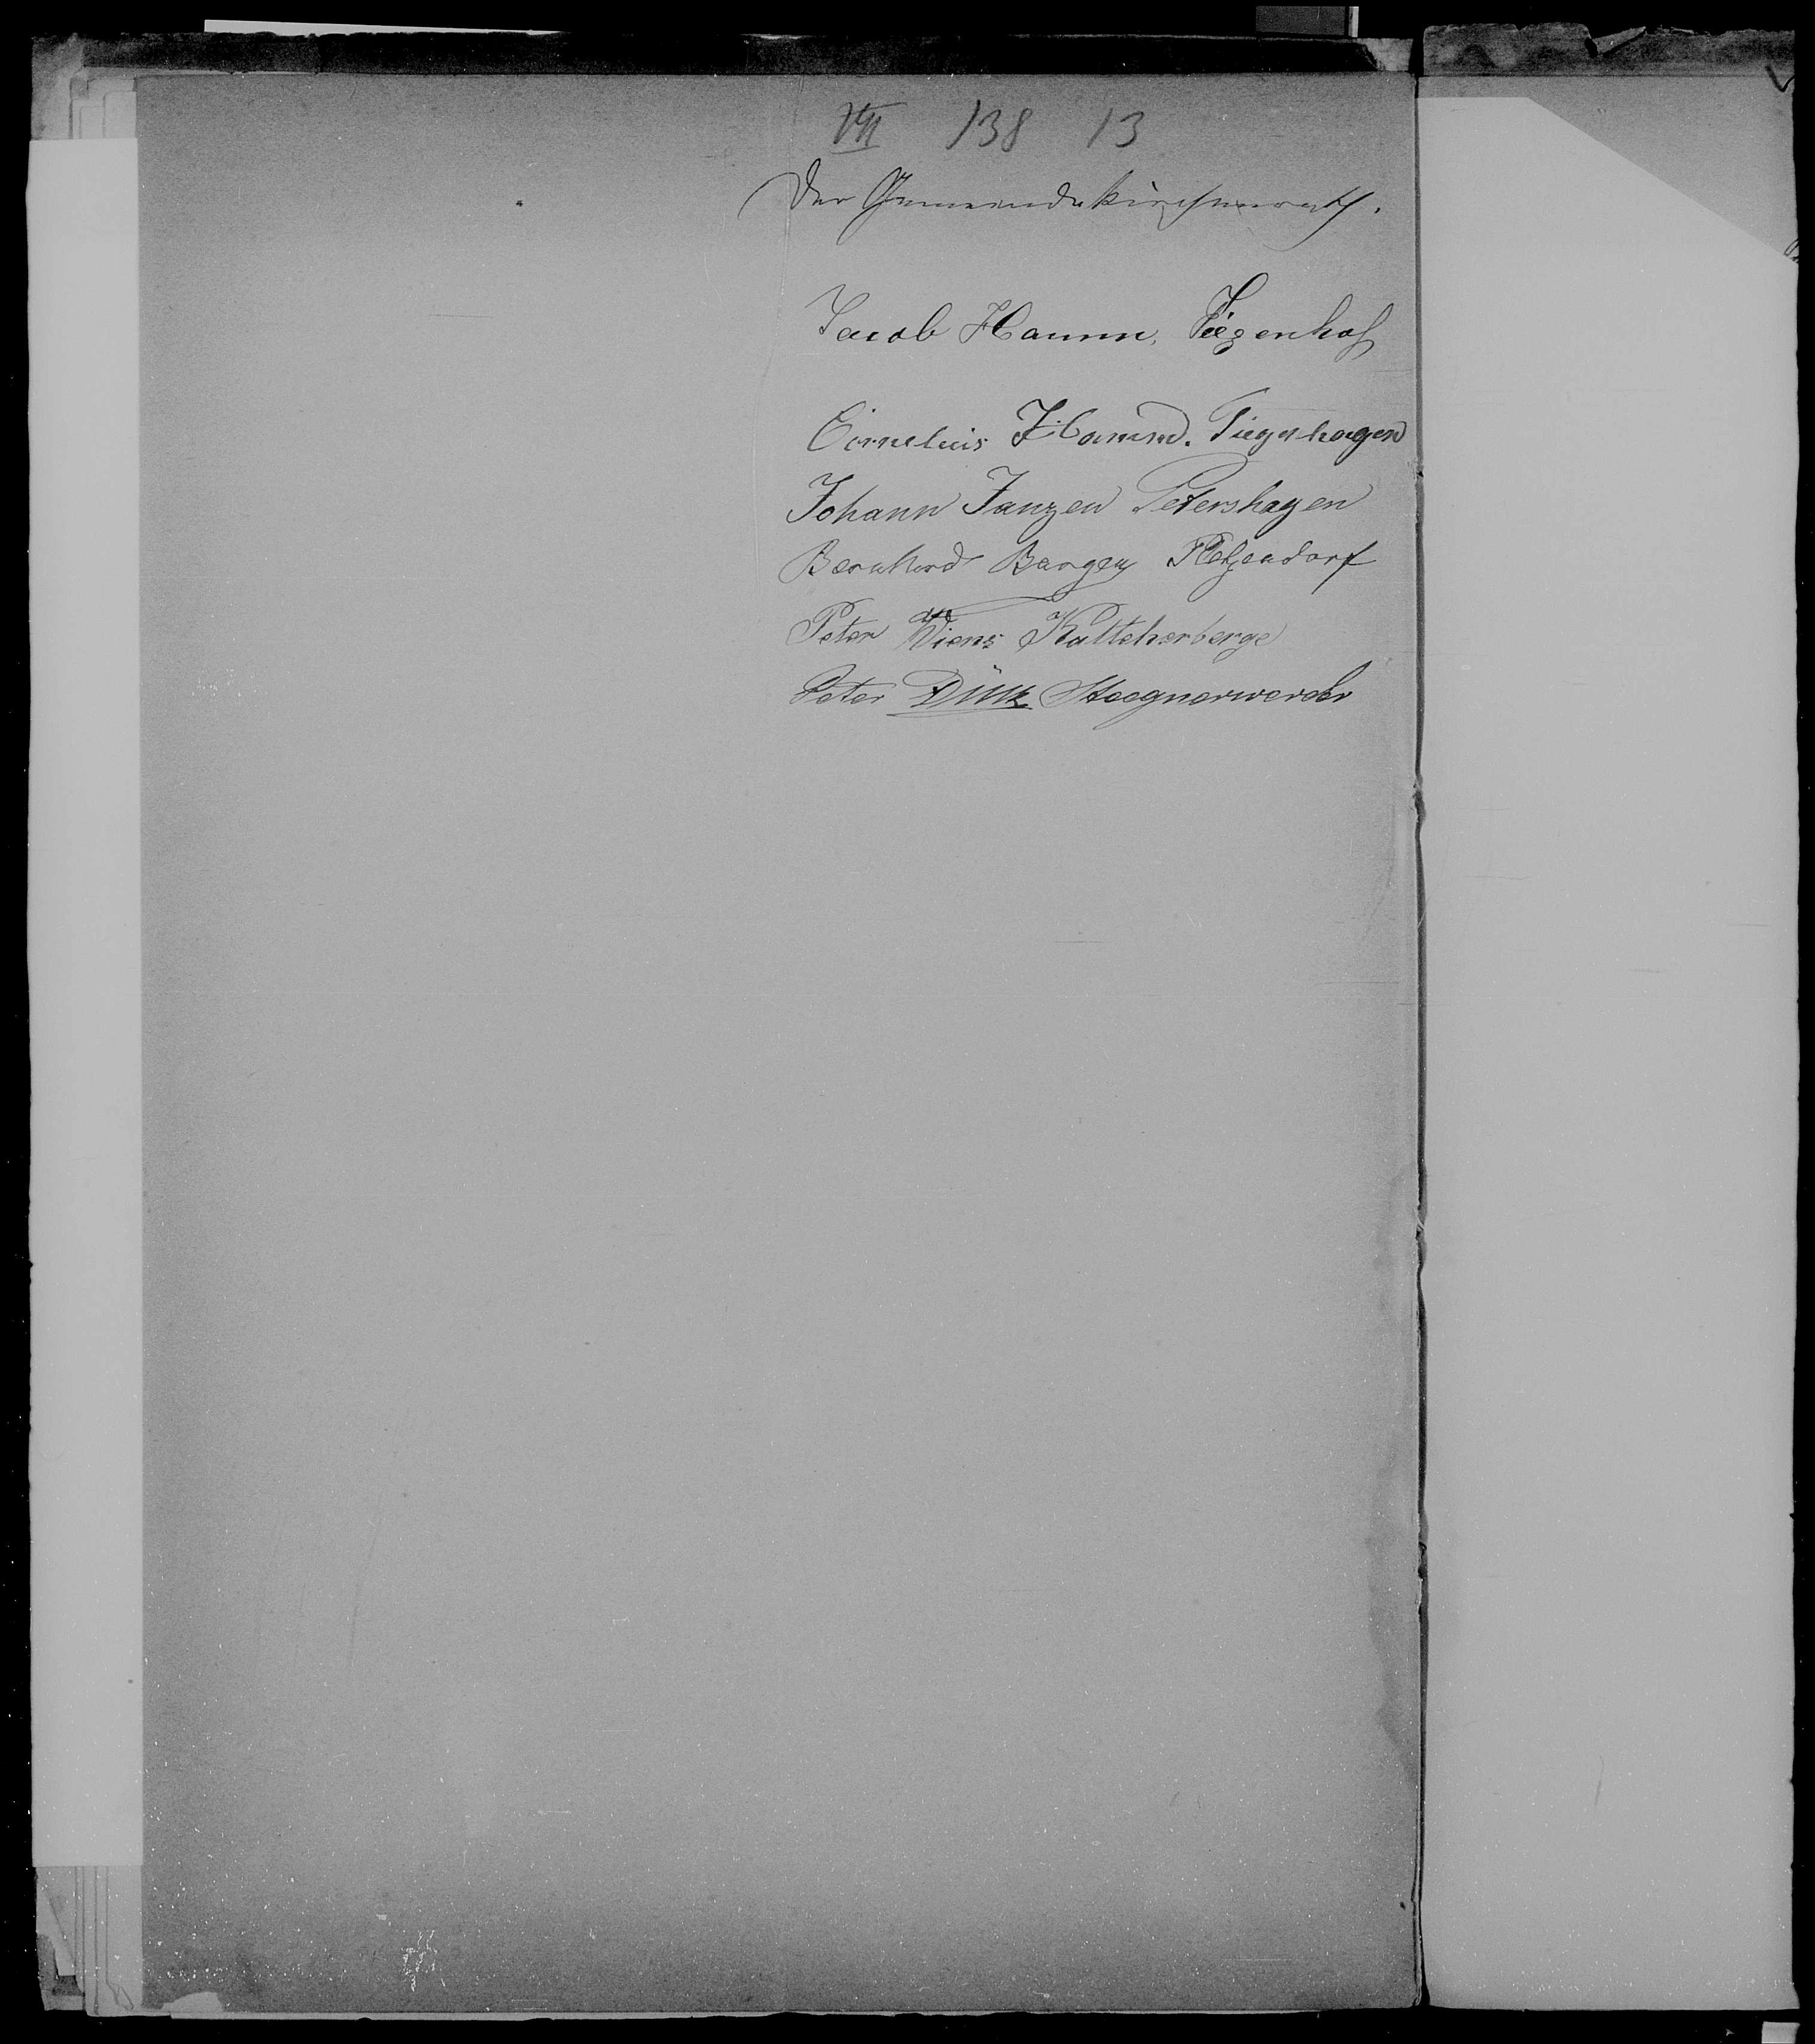 VII 138 13
Der Gemeindekirchenrath.
Jacob Hamm, Tiegenhof
Cornelius Hamm. Tiegenhagen
Johann Janzen Petershagen
Bernhard Bargen Platzendorf
Peter Wiens Kalteherberge
Peter Dück Steegnerwerder